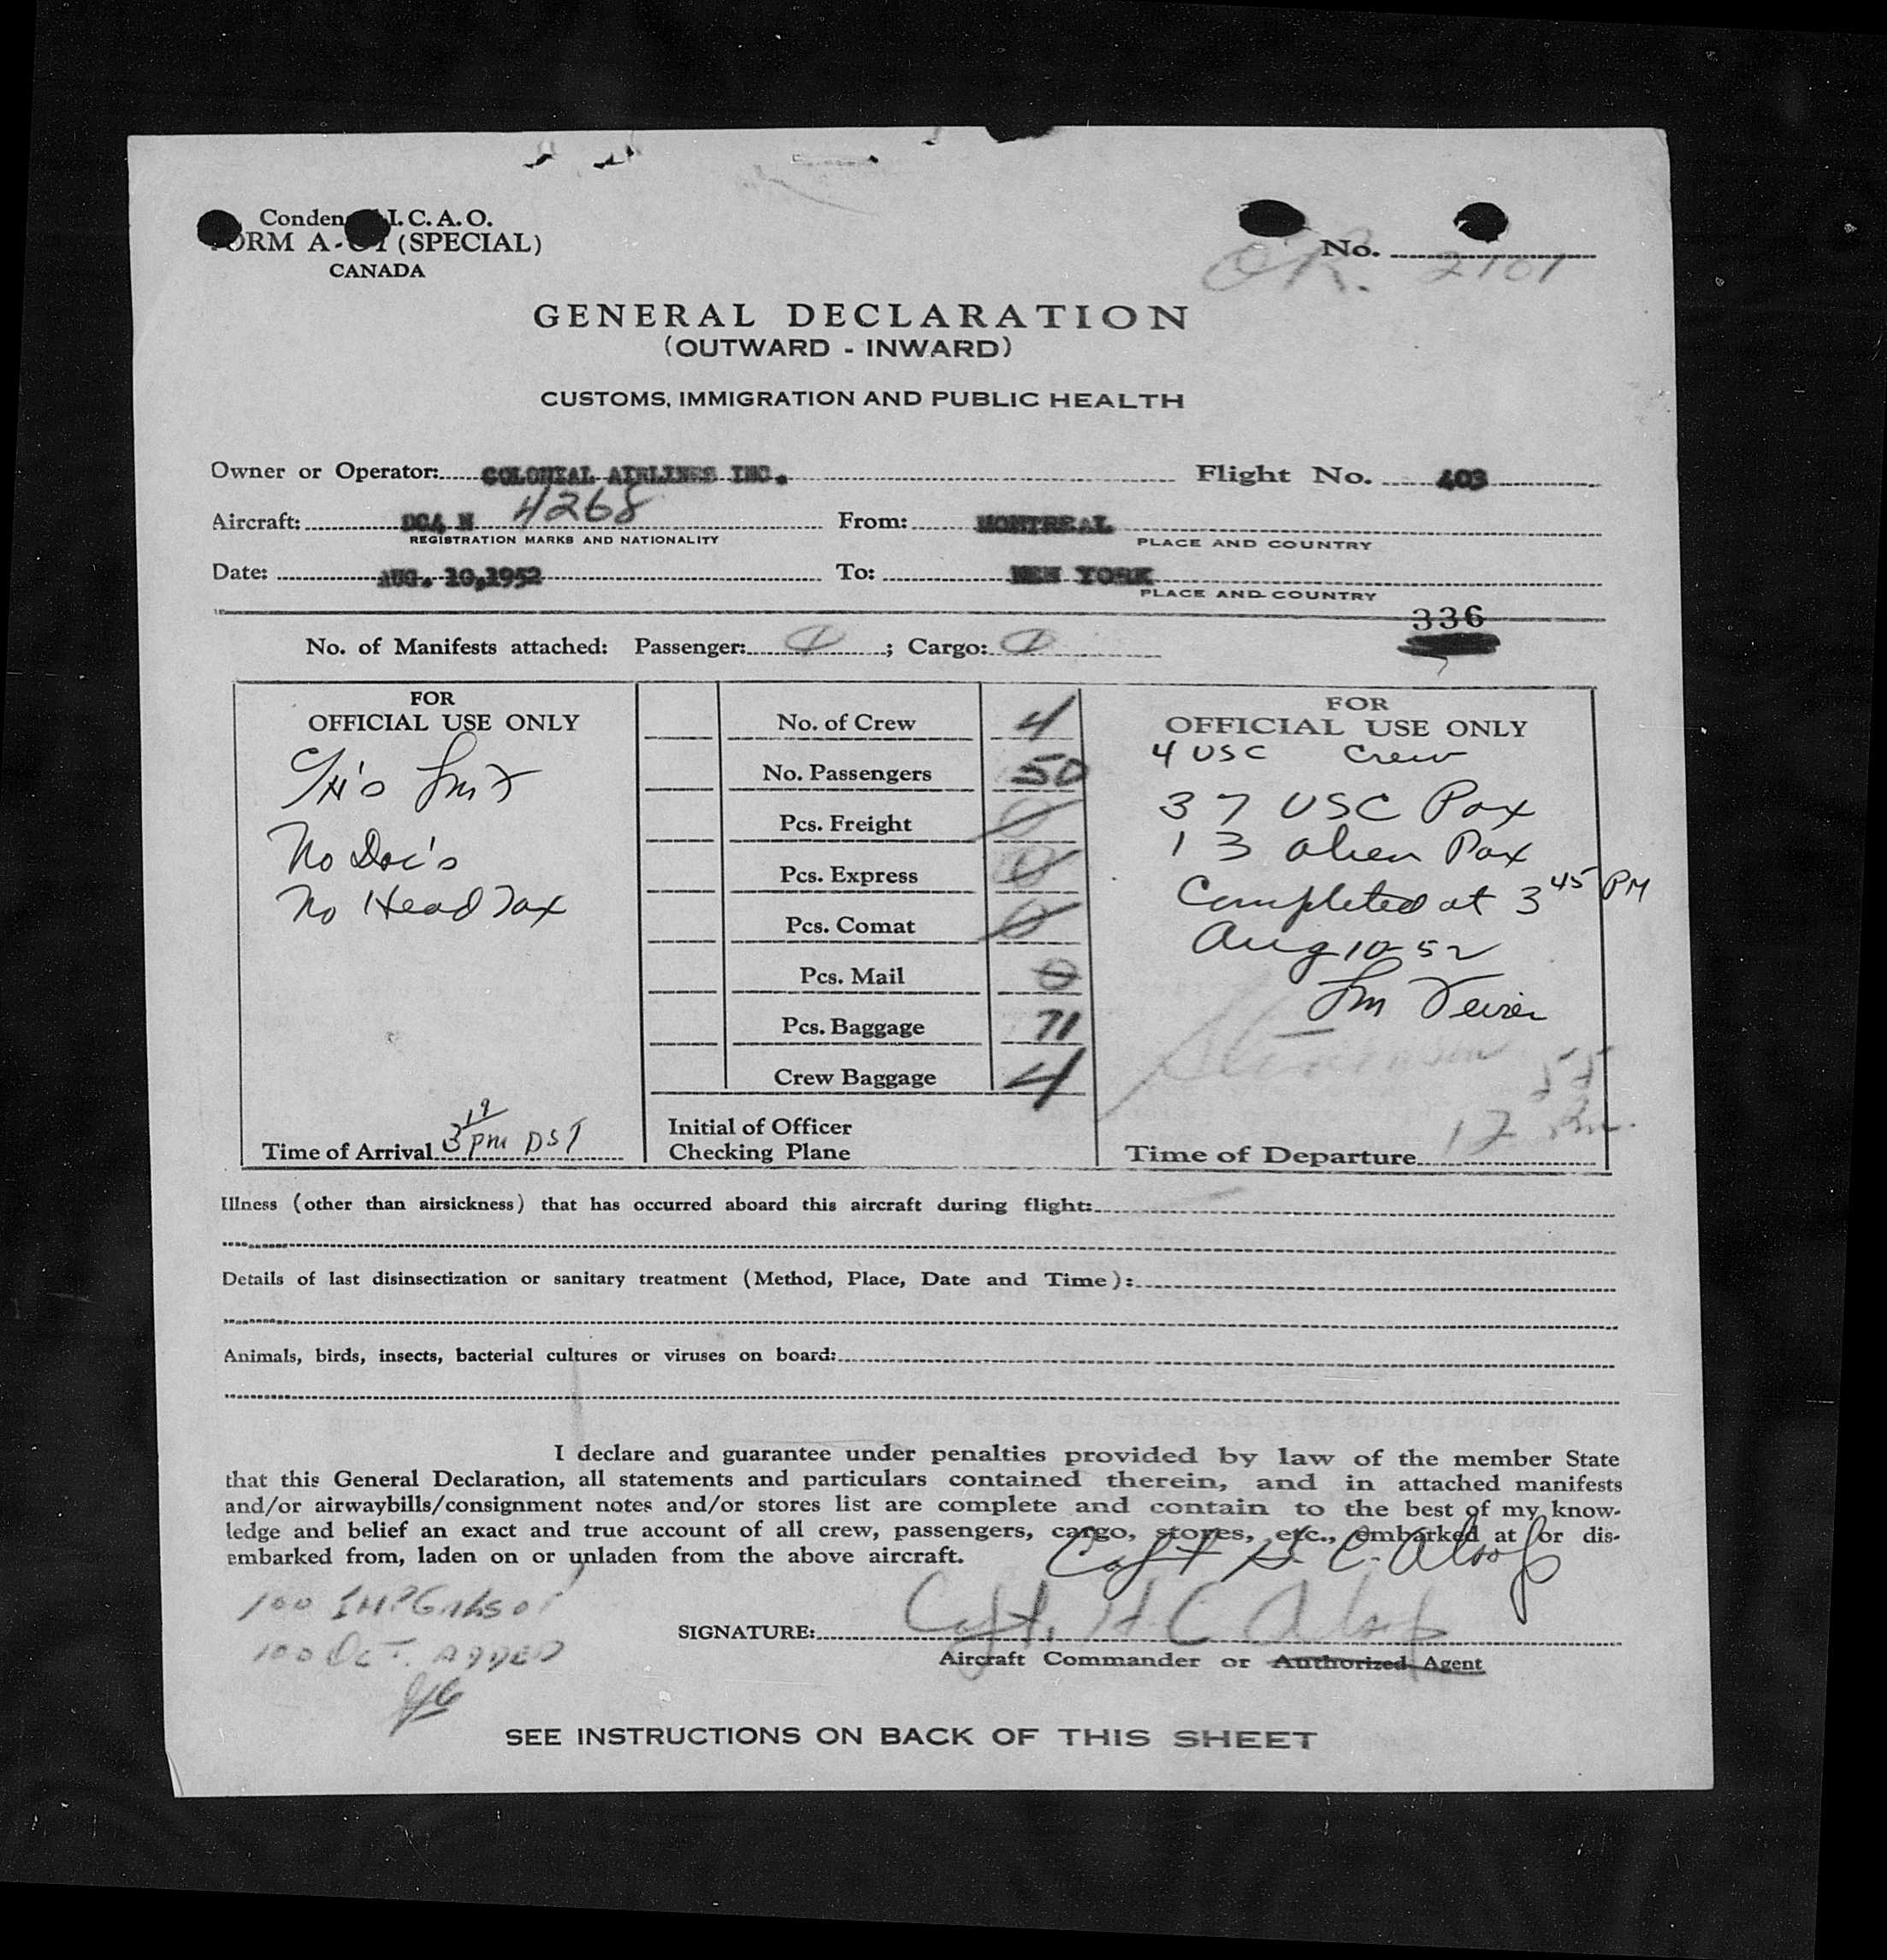 I. C. A. O.
(SPECIAL)
CANADA
No.
OR. 2101
GENERAL DECLARATION
(OUTWARD - INWARD)
CUSTOMS, IMMIGRATION AND PUBLIC HEALTH
Owner or Operator: COLONIAL AIRLINES INC. Flight No. 403
Aircraft: DC4 N 4268 From: MONTREAL
REGISTRATION MARKS AND NATIONALITY PLACE AND COUNTRY
Date: AUG. 10,1952 To: NEW YORK
PLACE AND COUNTRY
336
No. of Manifests attached: Passenger: 1 ; Cargo: 1
FOR
OFFICIAL USE ONLY
No Doc's
No Head Tax
Time of Arrival 3 19 pm DST
No. of Crew 4
No. Passengers 50
Pcs. Freight 0
Pcs. Express 0
Pcs. Comat 0
Pcs. Mail 0
Pcs. Baggage 71
Crew Baggage 4
Initial of Officer
Checking Plane
FOR
OFFICIAL USE ONLY
4 USC Crew
37 USC Pax
13 alien Pax
Completed at 3 45 PM
Aug 10-52
Time of Departure 12 55
Illness (other than airsickness) that has occurred aboard this aircraft during flight:
Details of last disinsectization or sanitary treatment (Method, Place, Date and Time):
Animals, birds, insects, bacterial cultures or viruses on board:
I declare and guarantee under penalties provided by law of the member State
that this General Declaration, all statements and particulars contained therein, and in attached manifests
and/or airwaybills/consignment notes and/or stores list are complete and contain to the best of my know-
ledge and belief an exact and true account of all crew, passengers, cargo, stores, etc., embarked at or dis-
embarked from, laden on or unladen from the above aircraft.
Capt H. C. Alsop
100 IMP GALS OF
100 OCT. ADDED
SIGNATURE: Capt. H C Alsop
Aircraft Commander or Authorized Agent
SEE INSTRUCTIONS ON BACK OF THIS SHEET